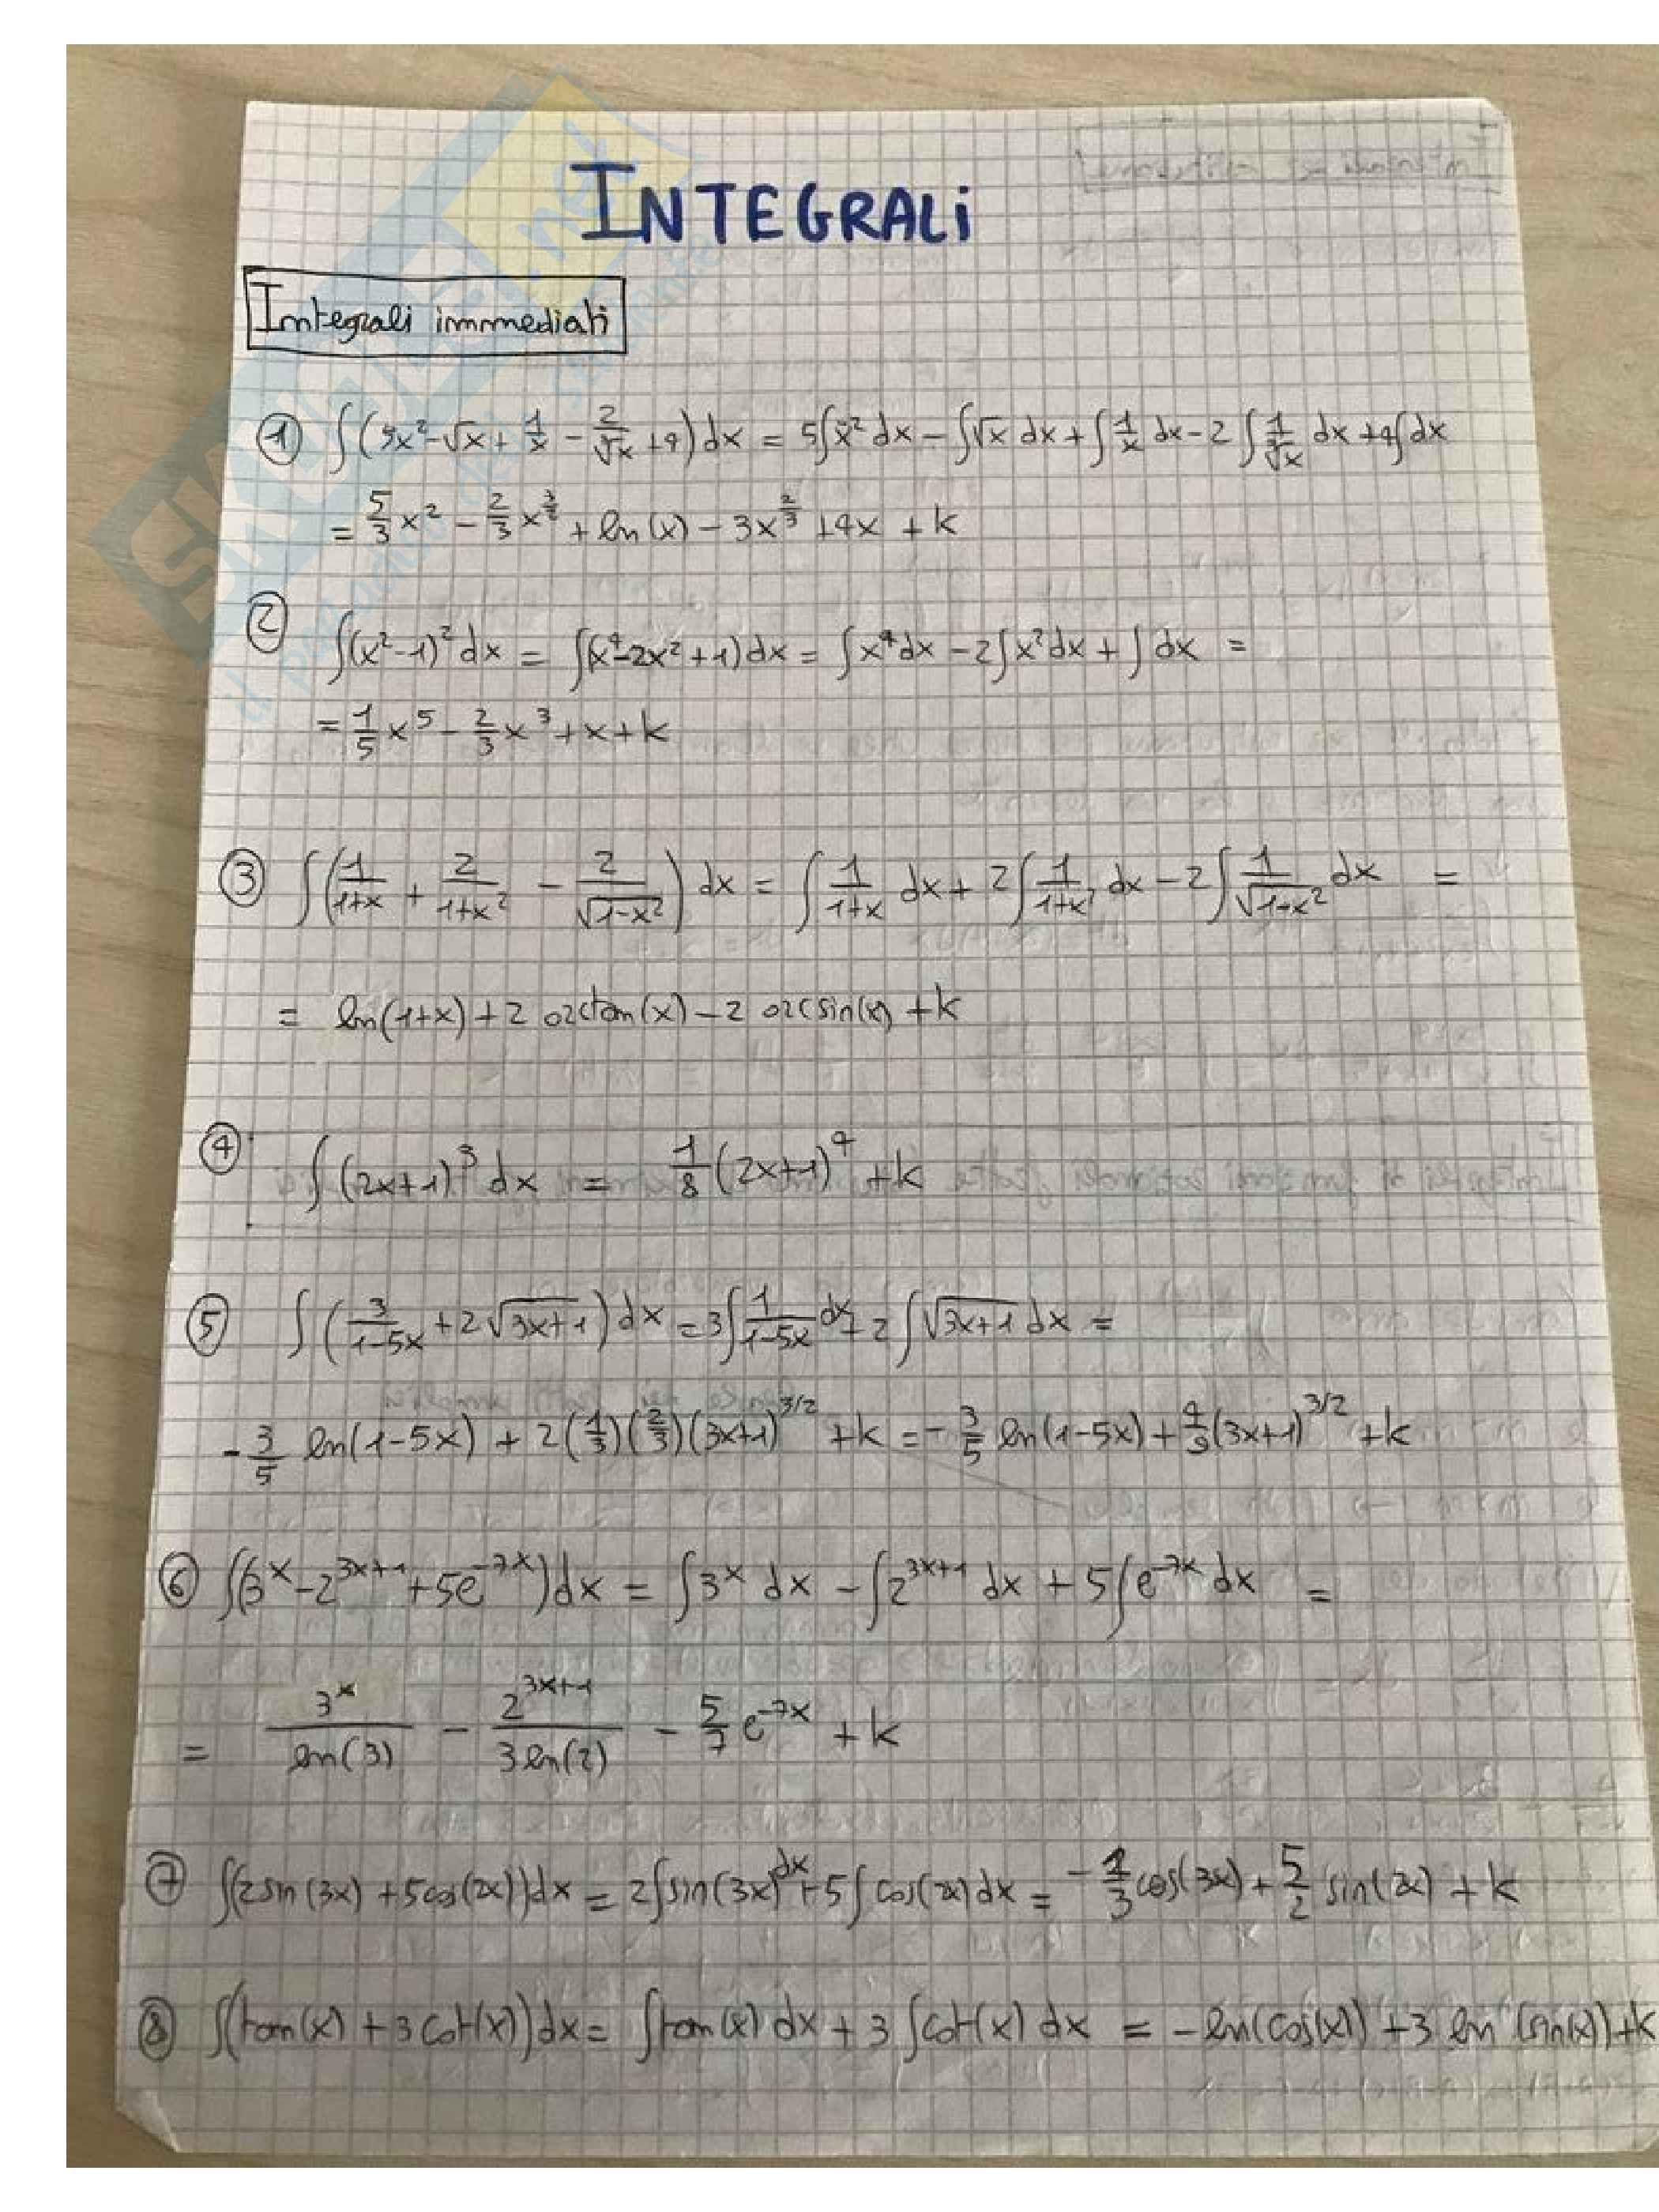 INTEGRALI
Integrali immediati
① ∫(5x²-√x + 1/x - 2/∛x +4)dx = 5∫x² dx - ∫√x dx + ∫1/x dx - 2∫1/∛x dx +4∫dx
= 5/3 x² - 2/3 x^(3/2) + ln(x) - 3x^(2/3) +4x + k
②
∫(x²-1)² dx = ∫(x⁴-2x²+1)dx = ∫x⁴dx - 2∫x²dx + ∫dx =
= 1/5 x⁵ - 2/3 x³ + x + k
③ ∫(1/(1+x) + 2/(1+x²) - 2/√(1-x²)) dx = ∫1/(1+x) dx + 2∫1/(1+x²) dx - 2∫1/√(1-x²) dx =
= ln(1+x) + 2 arctan(x) - 2 arcsin(x) + k
④ ∫(2x+1)³ dx = 1/8 (2x+1)⁴ + k
⑤ ∫(3/(1-5x) + 2√(3x+1)) dx = 3∫1/(1-5x) dx + 2∫√(3x+1) dx =
- 3/5 ln(1-5x) + 2(1/3)(2/3)(3x+1)^(3/2) + k = - 3/5 ln(1-5x) + 4/9 (3x+1)^(3/2) + k
⑥ ∫(3^x - 2^(3x+1) + 5e^(-7x))dx = ∫3^x dx - ∫2^(3x+1) dx + 5∫e^(-7x) dx =
= 3^x/ln(3) - 2^(3x+1)/(3 ln(2)) - 5/7 e^(-7x) + k
⑦ ∫(2sin(3x) + 5cos(2x))dx = 2∫sin(3x) dx + 5∫cos(2x)dx = - 2/3 cos(3x) + 5/2 sin(2x) + k
⑧ ∫(tan(x) + 3cot(x))dx = ∫tan(x) dx + 3∫cot(x) dx = -ln(cos(x)) + 3 ln(sin(x)) + k